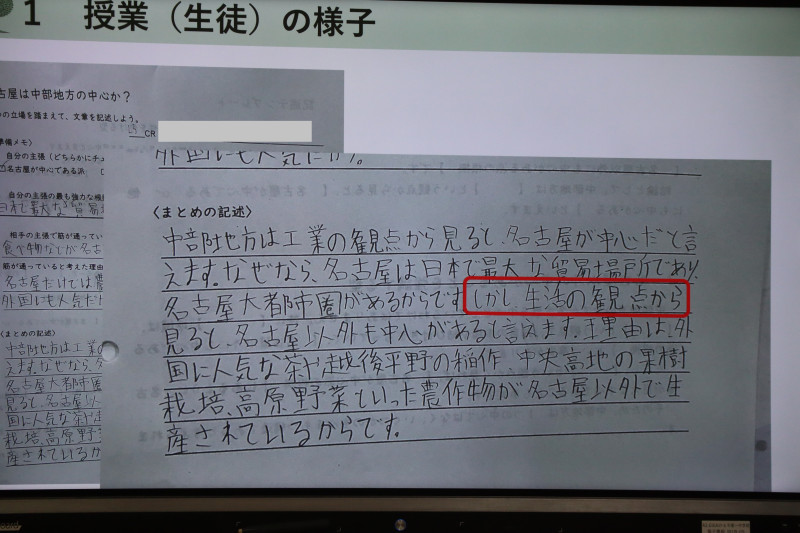 1 授業（生徒）の様子
古屋は中部地方の中心か？
の立場を踏まえて、文章を記述しよう。
CR
準備メモ〉
自分の主張（どちらかにチェ
名古屋が中心である派
自分の主張の最も強力な根
日本で最大な貿易
相手の主張で筋が通ってい
食べ物などが名古
筋が通っていると考えた理由
名古屋だけでは農
外国にも人気だ
〈まとめの記述〉
中部地方は工業の
えます。なぜなら、名
名古屋大都市圏
見ると、名古屋以
国に人気な茶や
栽培、高原野
産されているか
外国にも人気だ
〈まとめの記述〉
中部地方は工業の観点から見ると、名古屋が中心だと言
えます。なぜなら、名古屋は日本で最大な貿易場所であり、
名古屋大都市圏があるからです。しかし、生活の観点から
見ると、名古屋以外も中心があると言えます。理由は、外
国に人気な茶や越後平野の稲作、中央高地の果樹
栽培、高原野菜といった農作物が名古屋以外で生
産されているからです。